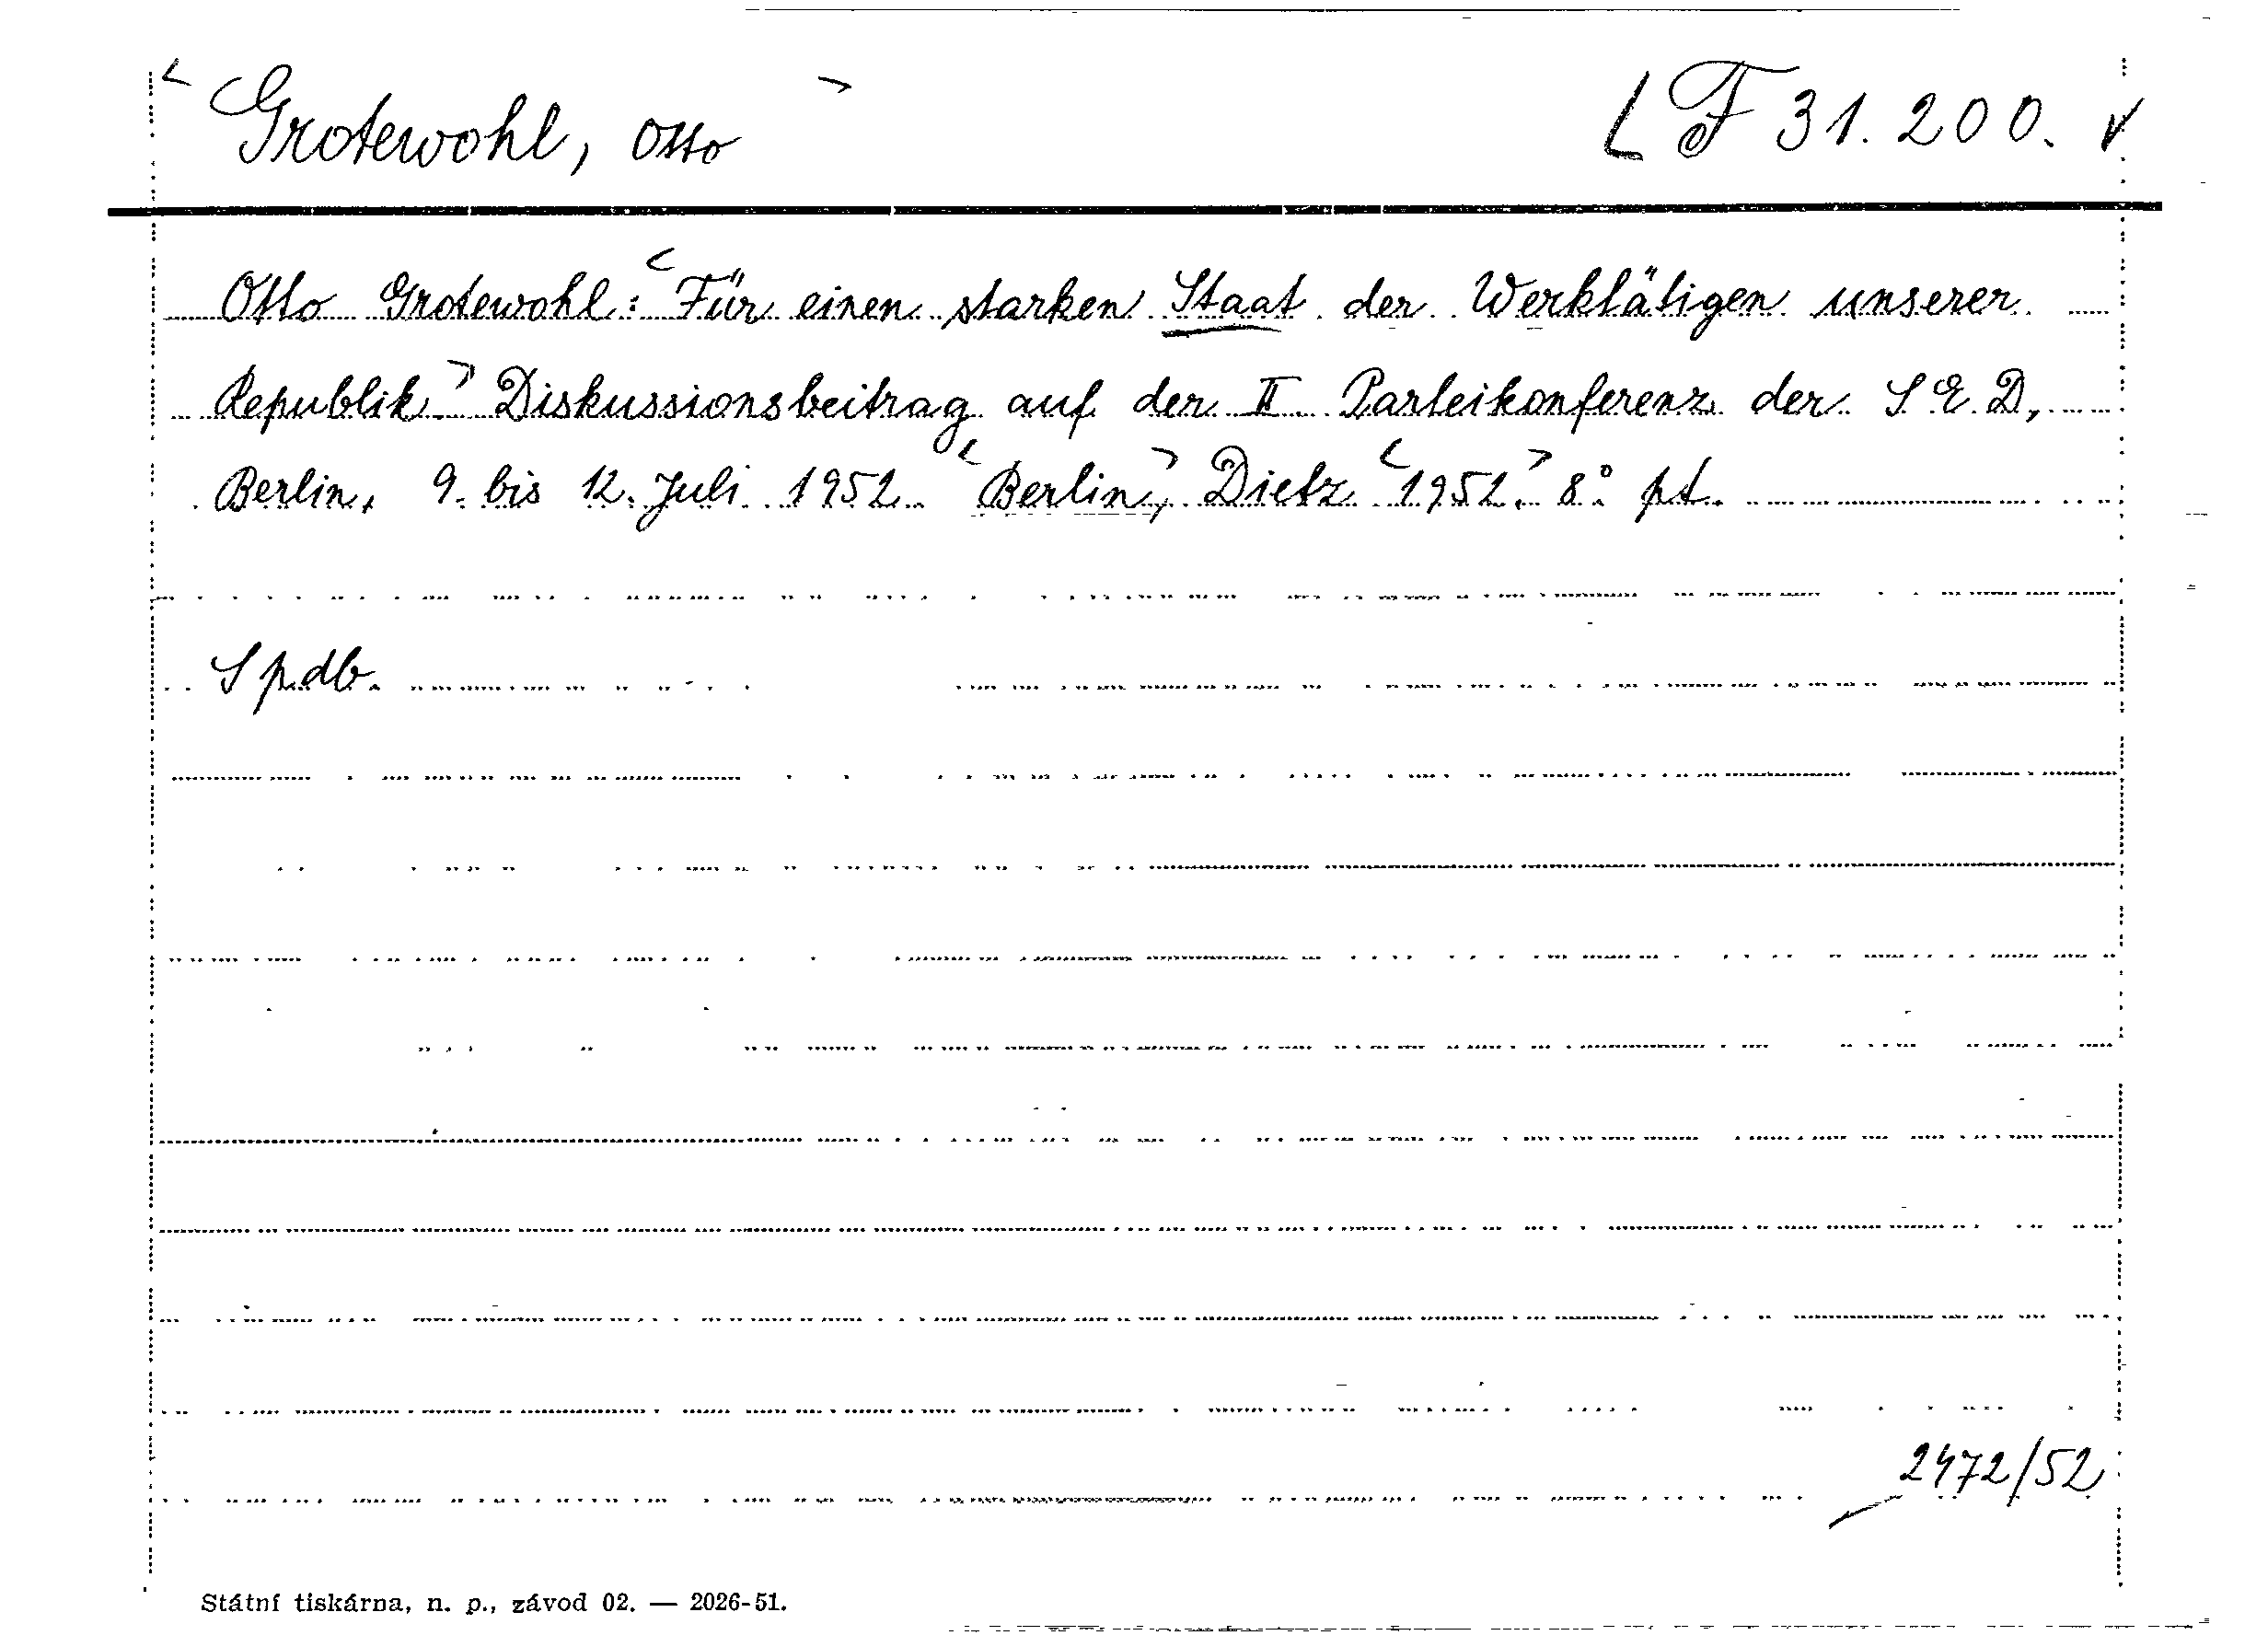 Grotewohl, Otto F 31.200.
Otto Grotewohl: Für einen starken Staat der Werktätigen unserer
Republik. Diskussionsbeitrag auf der II. Parteikonferenz der S.E.D,
Berlin, 9. bis 12. Juli 1952. Berlin, Dietz 1952. 8° pt.
Spdb.
2472/52
Státní tiskárna, n. p., závod 02. — 2026-51.